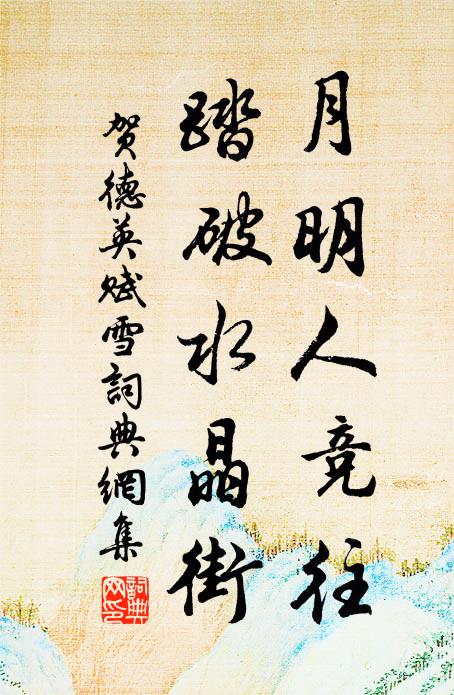 月明人竞往
踏破水晶街
贺德英赋雪詞典網集
詞典网印